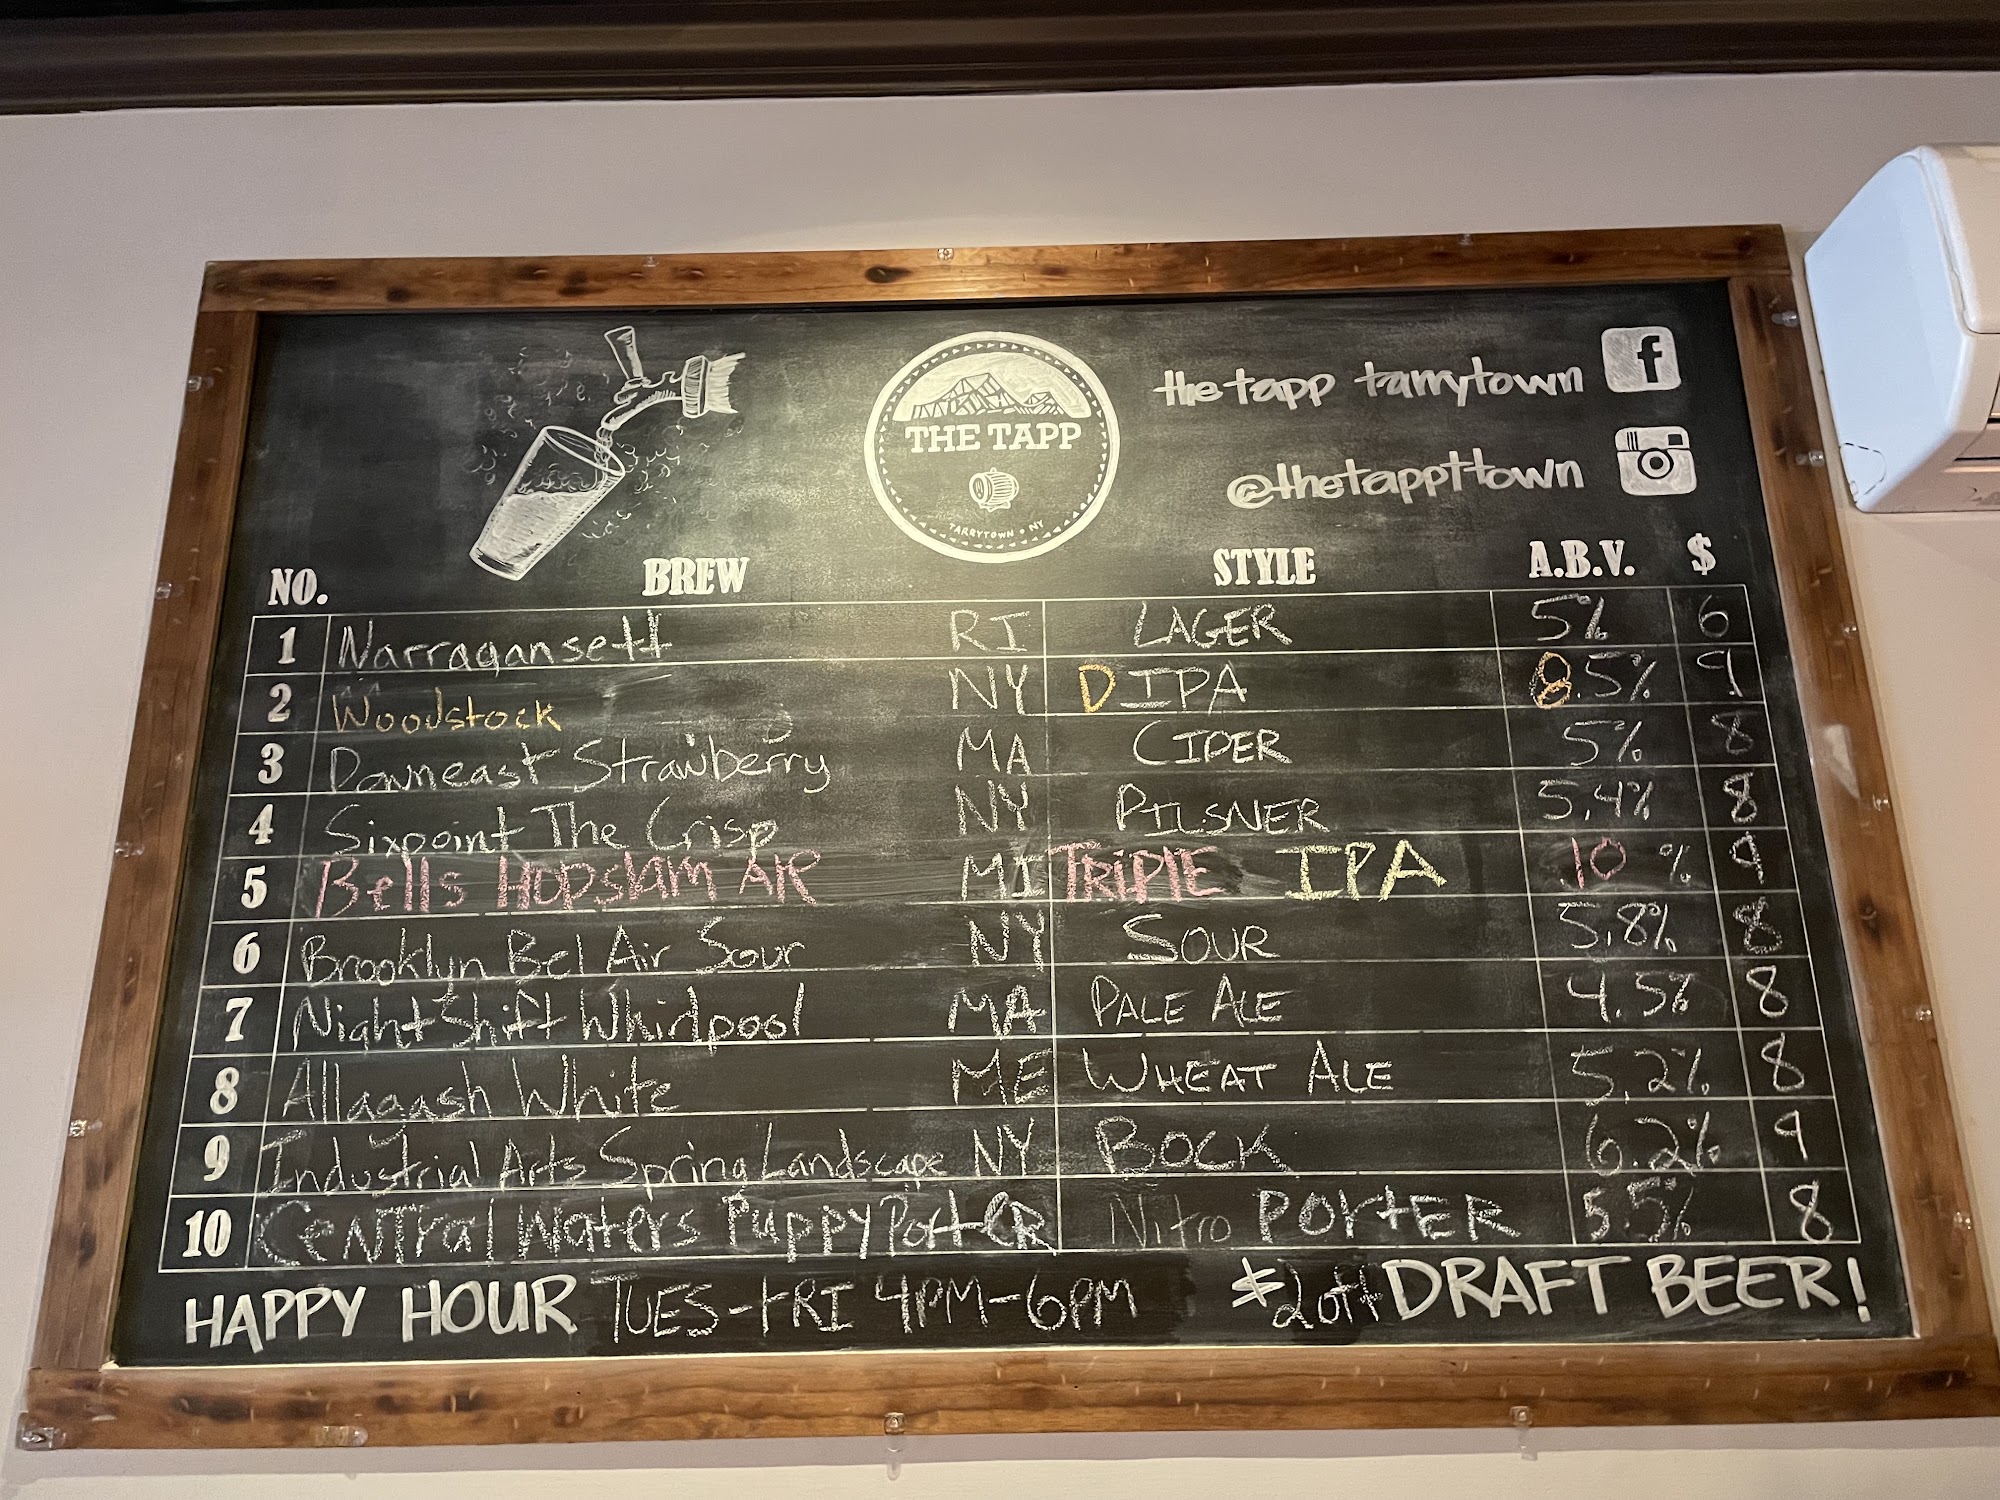 the tapp tarrytown f
THE TAPP
TARRYTOWN • NY
@thetappttown
NO. BREW STYLE A.B.V. $
1 Narragansett RI LAGER 5% 6
2 Woodstock NY DIPA 8.5% 9
3 Downeast Strawberry MA CIDER 5% 8
4 Sixpoint The Crisp NY PILSNER 5.4% 8
5 Bells HOPSlAM AIR MI TRIPlE IPA 10 % 9
6 Brooklyn Bel Air Sour NY SOUR 5.8% 8
7 Night Shift Whirlpool MA PALE ALE 4.5% 8
8 Allagash White ME WHEAT ALE 5.2% 8
9 Industrial Arts Spring Landscape NY BOCK 6.2% 9
10 CeNTral Waters PuppyPortER Nitro PORtER 5.5% 8
HAPPY HOUR TUES-FRI 4PM-6PM $2 off DRAFT BEER!